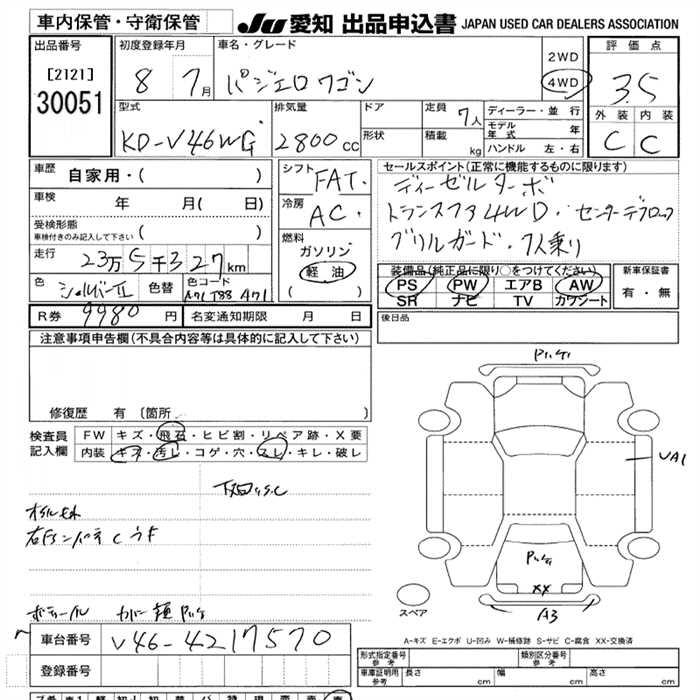 車内保管・守衛保管 JU 愛知 出品申込書 JAPAN USED CAR DEALERS ASSOCIATION
出品番号 [2121] 30051
初度登録年月 8 7月
車名・グレード パジェロワゴン
2WD
4WD
評価点 3.5
外装 内装
C C
型式 KD-V46WG
排気量 2800cc
ドア
形状
定員 7人
積載 kg
ディーラー・並行
モデル年式 年
ハンドル 左・右
車歴 自家用・( )
車検 年 月( 日)
受検形態
車検付きのみ記入して下さい ( )
走行 23万5千327km
色 シルバーII 色替 色コード
R券 9980円 名変通知期限 月 日
シフト FAT.
冷房 AC.
燃料 ガソリン
軽油
( )
セールスポイント(正常に機能するものに限ります)
ディーゼルターボ
トランスファ4WD・センターデフロック
グリルガード・7人乗り
装備品(純正品に限り○をつけてください)
PS PW エアB AW
SR ナビ TV カワシート
新車保証書
有・無
後日品
注意事項申告欄(不具合内容等は具体的に記入して下さい)
修復歴 有 〔箇所 〕
検査員記入欄
FW キズ・飛石・ヒビ割・リペア跡・X要
内装 キズ・汚レ・コゲ・穴・スレ・キレ・破レ
下回りS.C
UA1
XX
A3
スペア
A-キズ E-エクボ U-凹み W-補修跡 S-サビ C-腐食 XX-交換済
車台番号 V46-4217570
登録番号
形式指定番号 参考
類別区分番号 参考
車庫証明用 参考 長さ cm 幅 cm 高さ cm